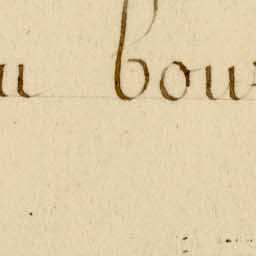 u bou